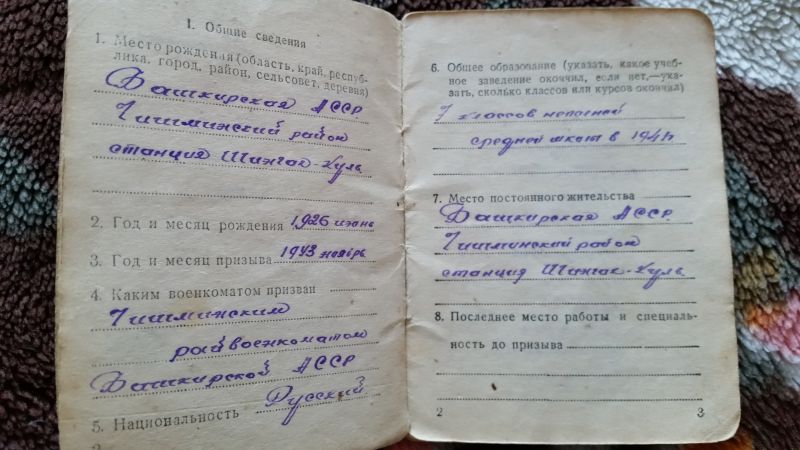 I. Общие сведения
1. Место рождения (область, край, респуб-
лика, город, район, сельсовет, деревня)
Башкирская АССР
Чишминский район
станция Шингак-Куль
2. Год и месяц рождения 1926 июнь
3. Год и месяц призыва 1943 ноябрь
4. Каким военкоматом призван
Чишминским
райвоенкоматом
Башкирской АССР
5. Национальность Русский
2
6. Общее образование (указать, какое учеб-
ное заведение окончил, если нет,—ука-
зать, сколько классов или курсов окончил)
7 классов неполной
средней школы в 1941г
7. Место постоянного жительства
Башкирская АССР
Чишминский район
станция Шингак-Куль
8. Последнее место работы и специаль-
ность до призыва
3